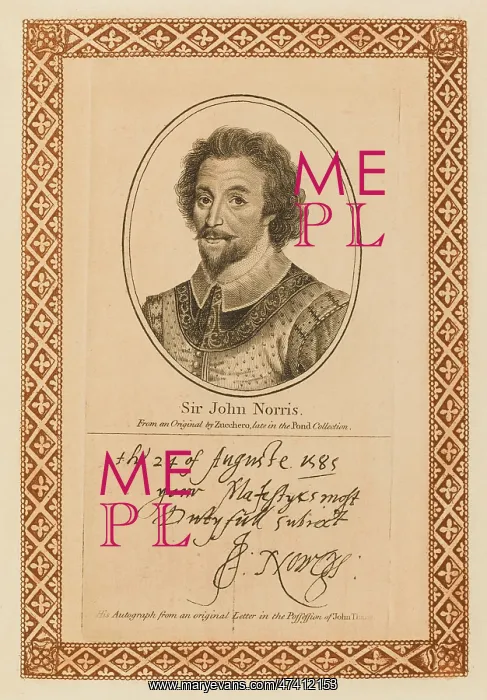 ME
PL
Sir John Norris.
From an Original by Zucchero, late in the Pond Collection.
thy 24 of Auguste 1585
ME
your Matestyes most
PL
Dutyfull subiect
J. Norrys
His Autograph from an original Letter in the Possession of John
www.maryevans.com/47412153